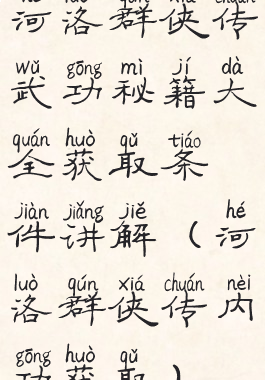 hé luò qún xiá chuán
河洛群侠传
wǔ gōng mì jí dà
武功秘籍大
quán huò qǔ tiáo
全获取条
jiàn jiǎng jiě hé
件讲解（河
luò qún xiá chuán nèi
洛群侠传内
gōng huò qǔ
功获取）